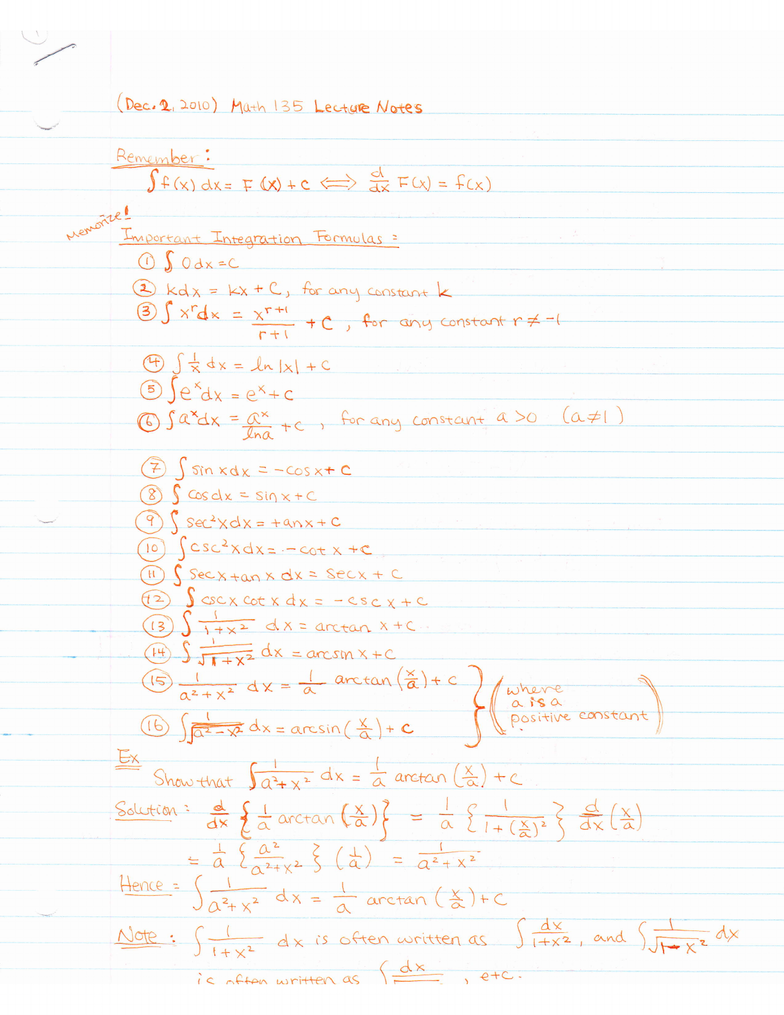 (Dec. 2, 2010) Math 135 Lecture Notes
Remember:
∫f(x) dx = F(x) + c ⟺ d/dx F(x) = f(x)
Memorize!
Important Integration Formulas:
① ∫ 0dx = C
② kdx = kx + C, for any constant k
③ ∫ x^r dx = x^(r+1)/(r+1) + C, for any constant r ≠ -1
④ ∫ 1/x dx = ln|x| + c
⑤ ∫e^x dx = e^x + c
⑥ ∫a^x dx = a^x/lna + c, for any constant a > 0 (a≠1)
⑦ ∫ sin xdx = -cosx + c
⑧ ∫ cosdx = sinx + c
⑨ ∫ sec²xdx = tanx + c
⑩ ∫csc²xdx = -cot x + c
⑪ ∫ secxtanx dx = secx + c
⑫ ∫ cscxcotx dx = -cscx + c
⑬ ∫ 1/(1+x²) dx = arctan x + c
⑭ ∫ 1/√(1+x²) dx = arcsin x + c
⑮ 1/(a²+x²) dx = 1/a arctan(x/a) + c
⑯ ∫ 1/√(a²-x²) dx = arcsin(x/a) + c
} (where
a is a
positive constant)
Ex
Show that ∫ 1/(a²+x²) dx = 1/a arctan(x/a) + c
Solution: d/dx {1/a arctan(x/a)} = 1/a {1/(1+(x/a)²)} d/dx (x/a)
= 1/a {a²/(a²+x²)} (1/a) = 1/(a²+x²)
Hence: ∫ 1/(a²+x²) dx = 1/a arctan(x/a) + c
Note: ∫ 1/(1+x²) dx is often written as ∫ dx/(1+x²), and ∫ 1/√(1-x²) dx
is often written as ∫ dx/, etc.